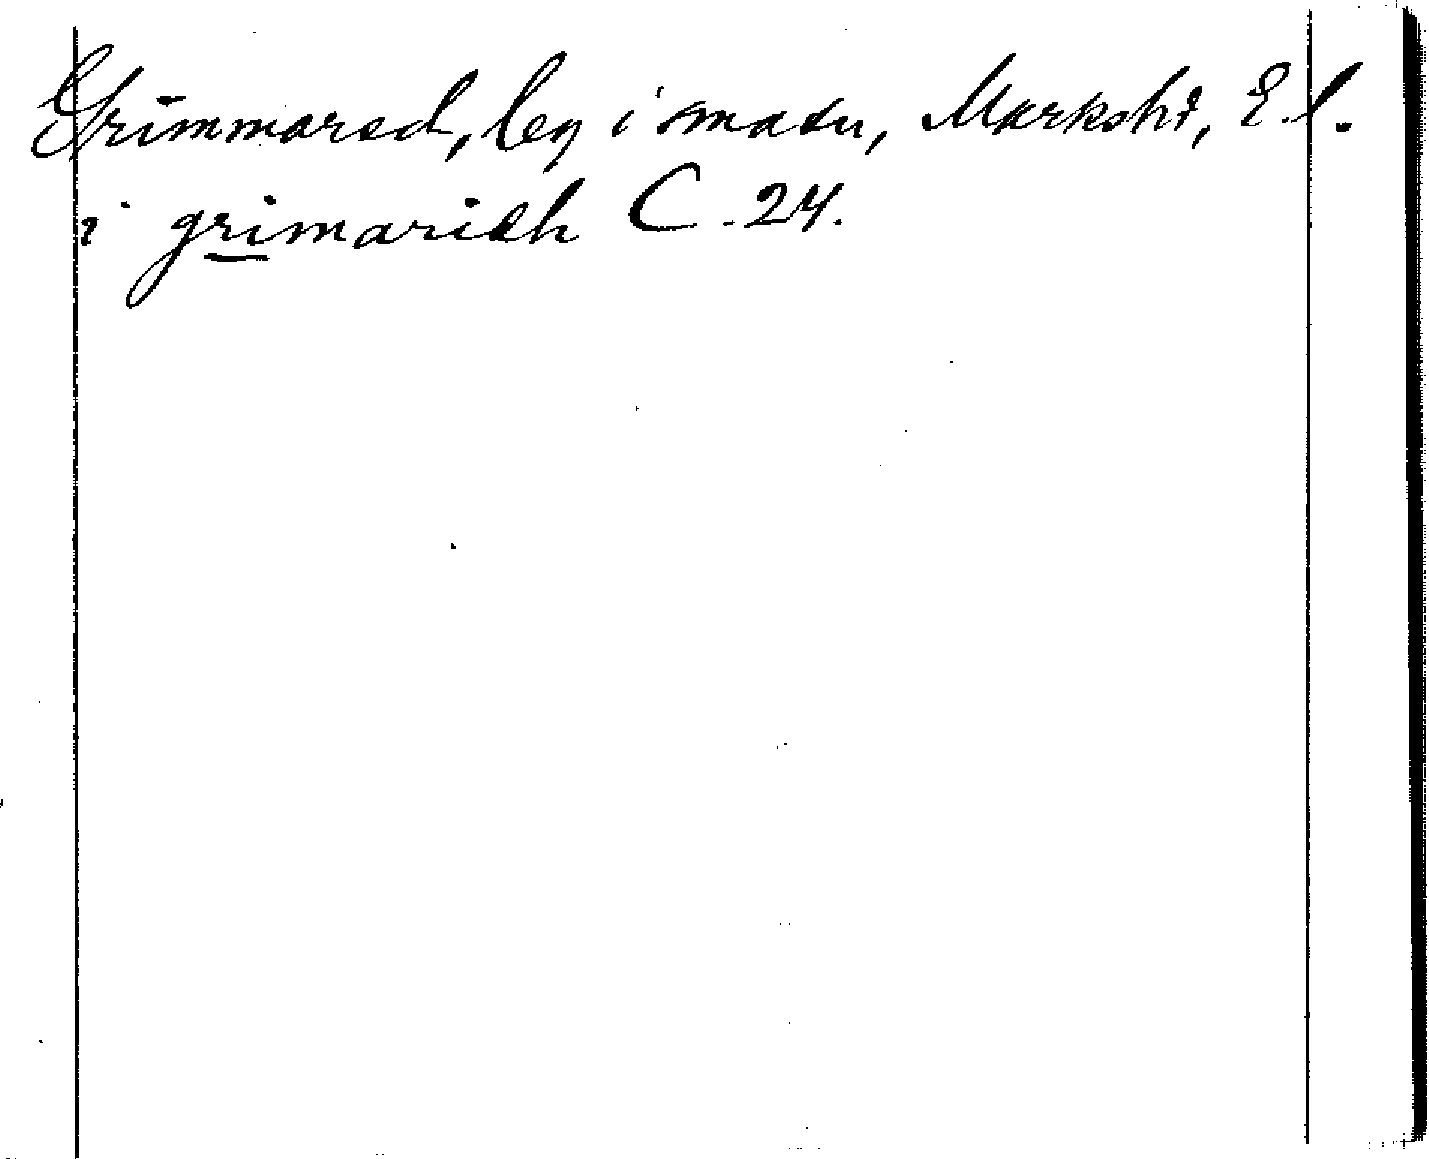 Grimmared, by i smatu, Markshd, E.l.
i grimarich C. 24.